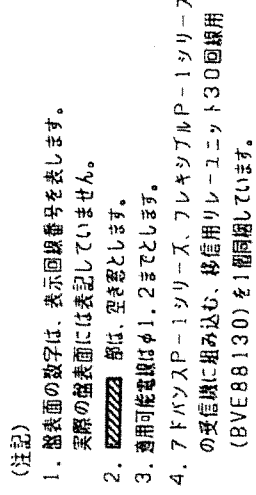 (注記)
1. 盤表面の数字は、表示回線番号を表します。
実際の盤表面には表記していません。
2. 部は、空き窓とします。
3. 適用可能電線はφ1.2までとします。
4. アドバンスP-1シリーズ、フレキシブルP-1シリーズ
の受信機に組み込む、移信用リレーユニット30回線用
(BVE88130)を1個同梱しています。